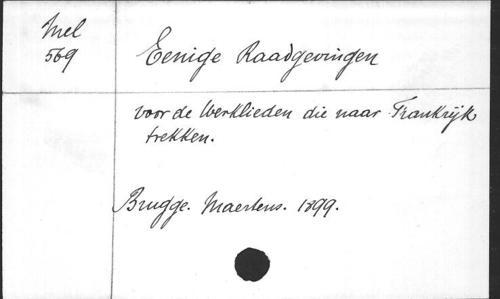 Mel
569
Eenige Raadgevingen
voor de Werklieden die naar Frankrijk
trekken.
Brugge. Maertens. 1899.